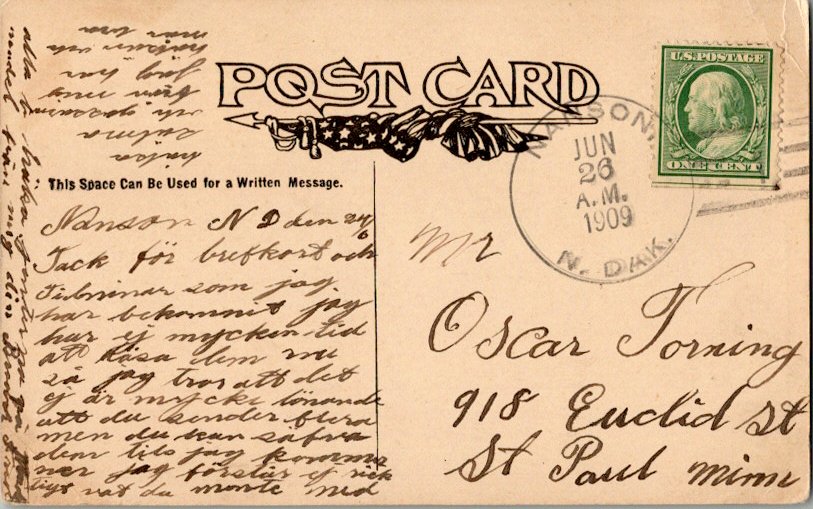 POST CARD
This Space Can Be Used for a Written Message.
U.S. POSTAGE
ONE CENT
NANSON,
JUN
26
A.M.
1909
N. DAK.
Nanson N D den 24/6
Tack för brefkort och
Tidninar som jag
har bekommit jag
har ej mycken tid
att läsa dem nu
så jag tror att det
ej är mycke lönande
att du sender flera
men du kan
dem tils jag komma
ner jag förstår ej rick
tigt vat du monte med
Mr
Oscar Torning
918 Euclid St
St Paul Minn
alla
från mig din
helsa
och
har
mår bra